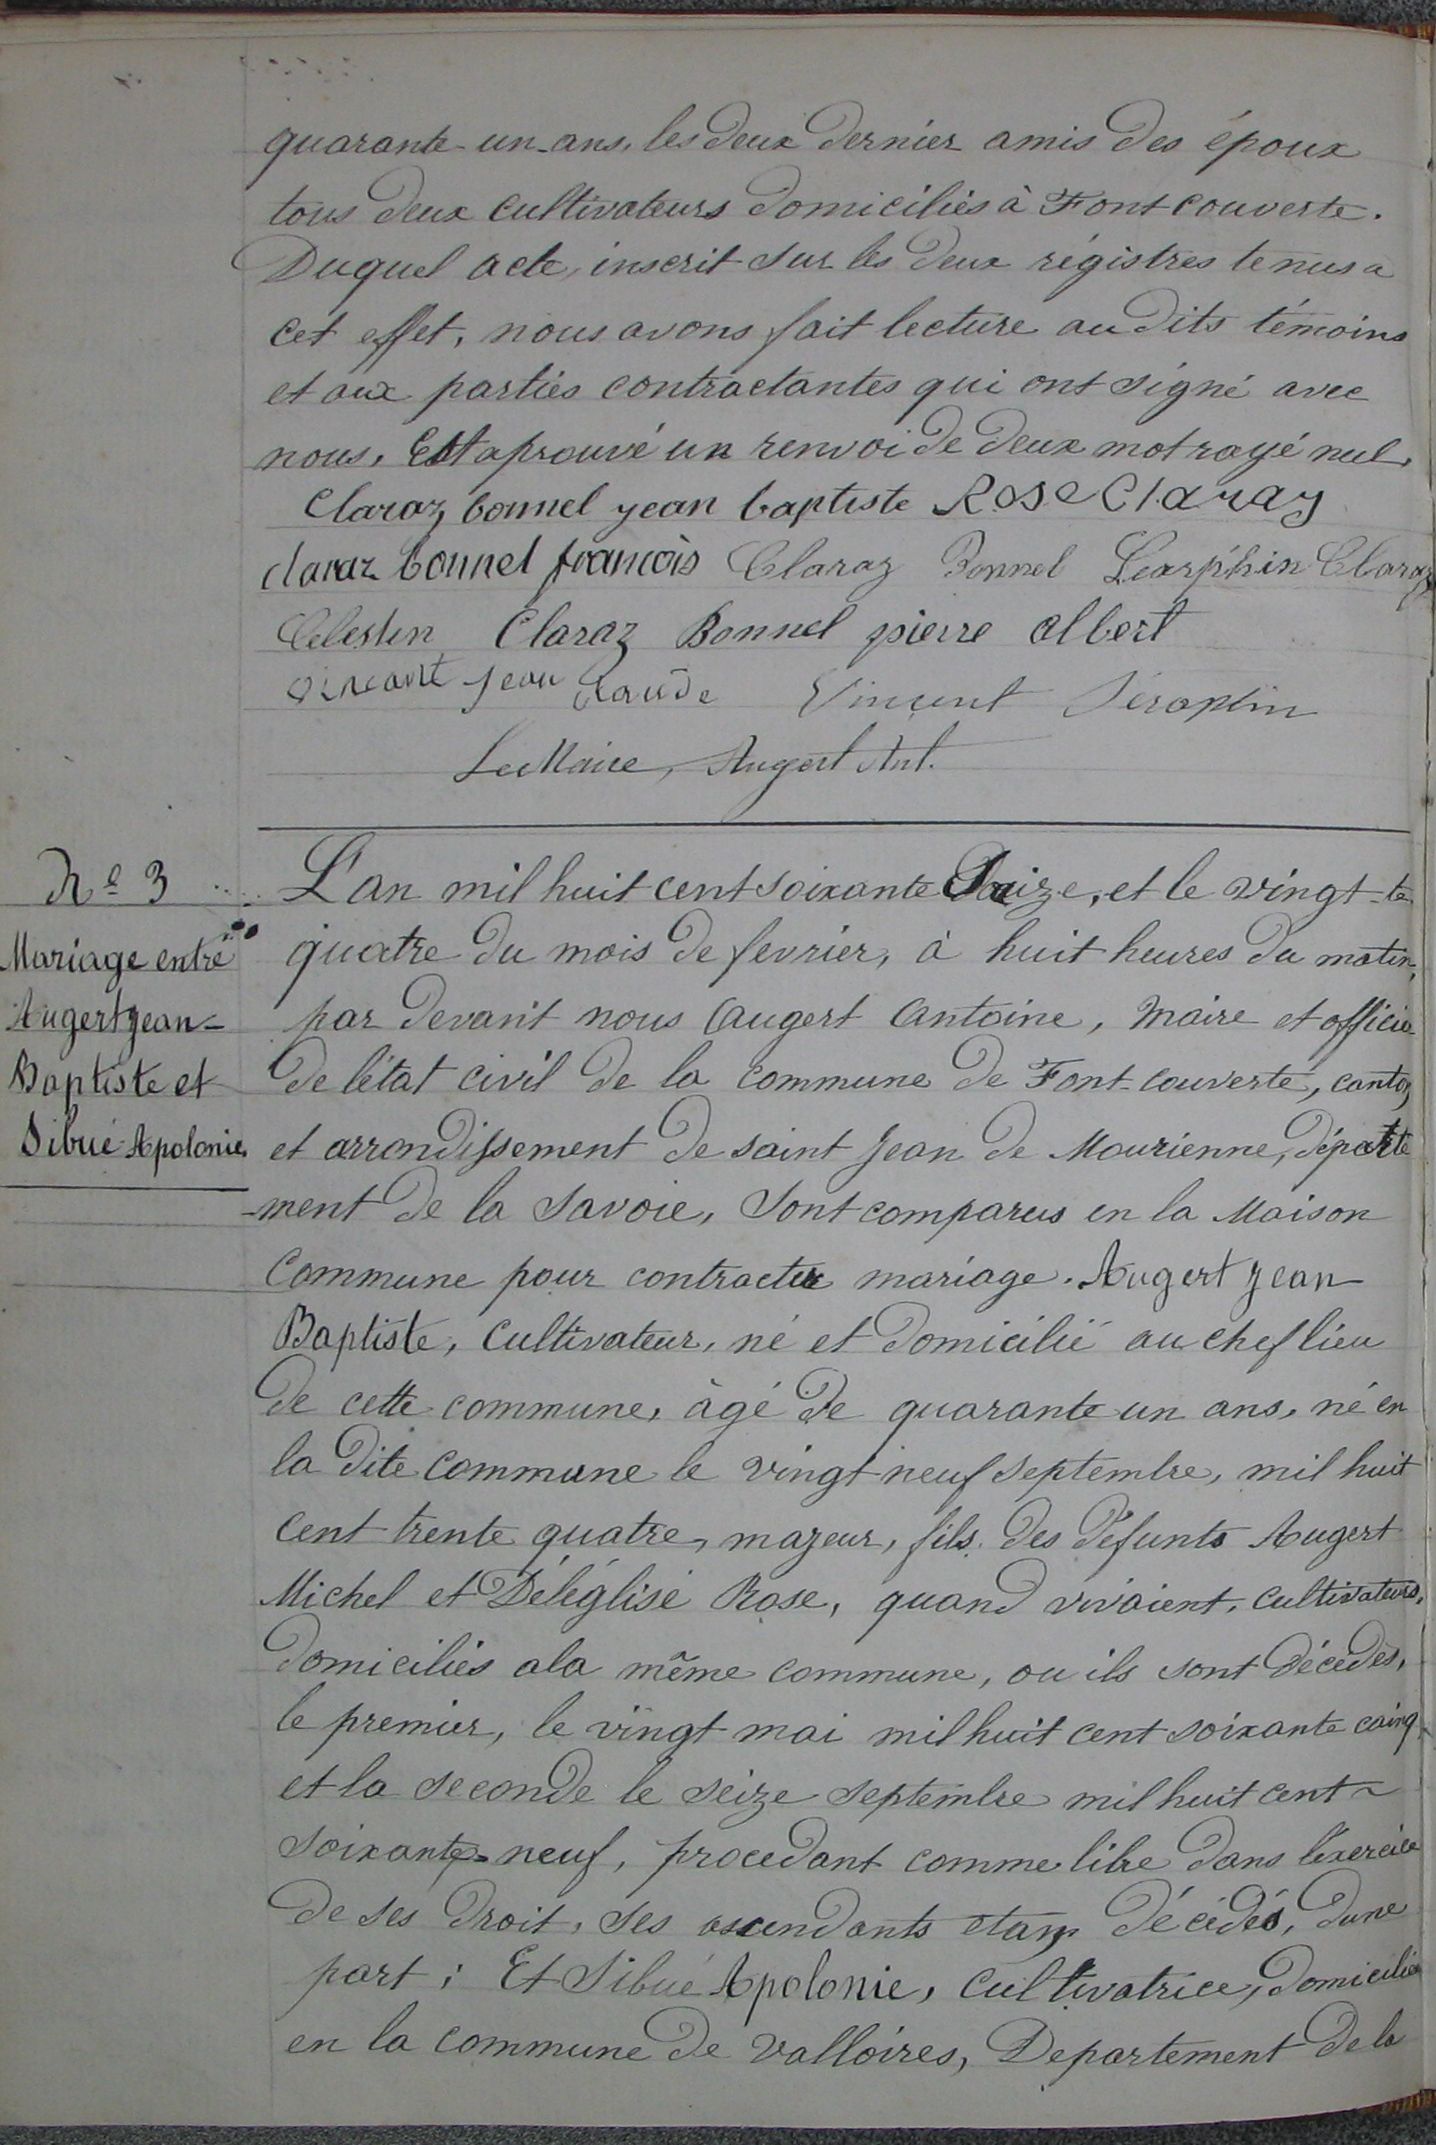 quarante un ans, les deux dernier amis des époux
tous deux cultivateurs domiciliés à Fontcouverte.
Duquel acte, inscrit sur les deux régistres tenus a
cet effet, nous avons fait lecture au dits témoins
et aux parties contractantes qui ont signé avec
nous. Est aprouvé un renvoi de deux mot rayé nul.
Claraz bonnel jean baptiste Rose Claraz
claraz bonnel françois Claraz Bonnel Searphin Claraz
Celestin Claraz Bonnel pierre albert
vincant jean claude Vincent Séraphin
Le Maire, Augert Ant.
Nº 3
Mariage entre
Augert jean-
Baptiste et
Sibué Apolonie
L'an mil huit cent soixante Seize, et le vingt-te
quatre du mois de fevrier, à huit heures du matin,
par devant nous Augert Antoine, Maire et officier
de l'état civil de la commune de Font-couverte, canton
et arrondissement de saint Jean de Maurienne, départe
-ment de la Savoie, Sont comparus en la Maison
Commune pour contracter mariage. Augert jean
Baptiste, Cultivateur, né et domicilié au chef lieu
de cette commune, âgé de quarante un ans, né en
la dite commune le vingt neuf septembre, mil huit
cent trente quatre, majeur, fils des défunts Augert
Michel et Déléglise Rose, quand vivaient, cultivateurs,
domiciliés a la même commune, ou ils sont décédés,
le premier, le vingt mai mil huit cent soixante cainq,
et la seconde le seize septembre mil huit cent
soixante-neuf, procedant comme libre dans l'éxercice
de ses droit, ses ascendants etant décédés, d'une
part; Et Sibué Apolonie, Cultivatrice, domiciliée
en la commune de Valloires, Departement de la